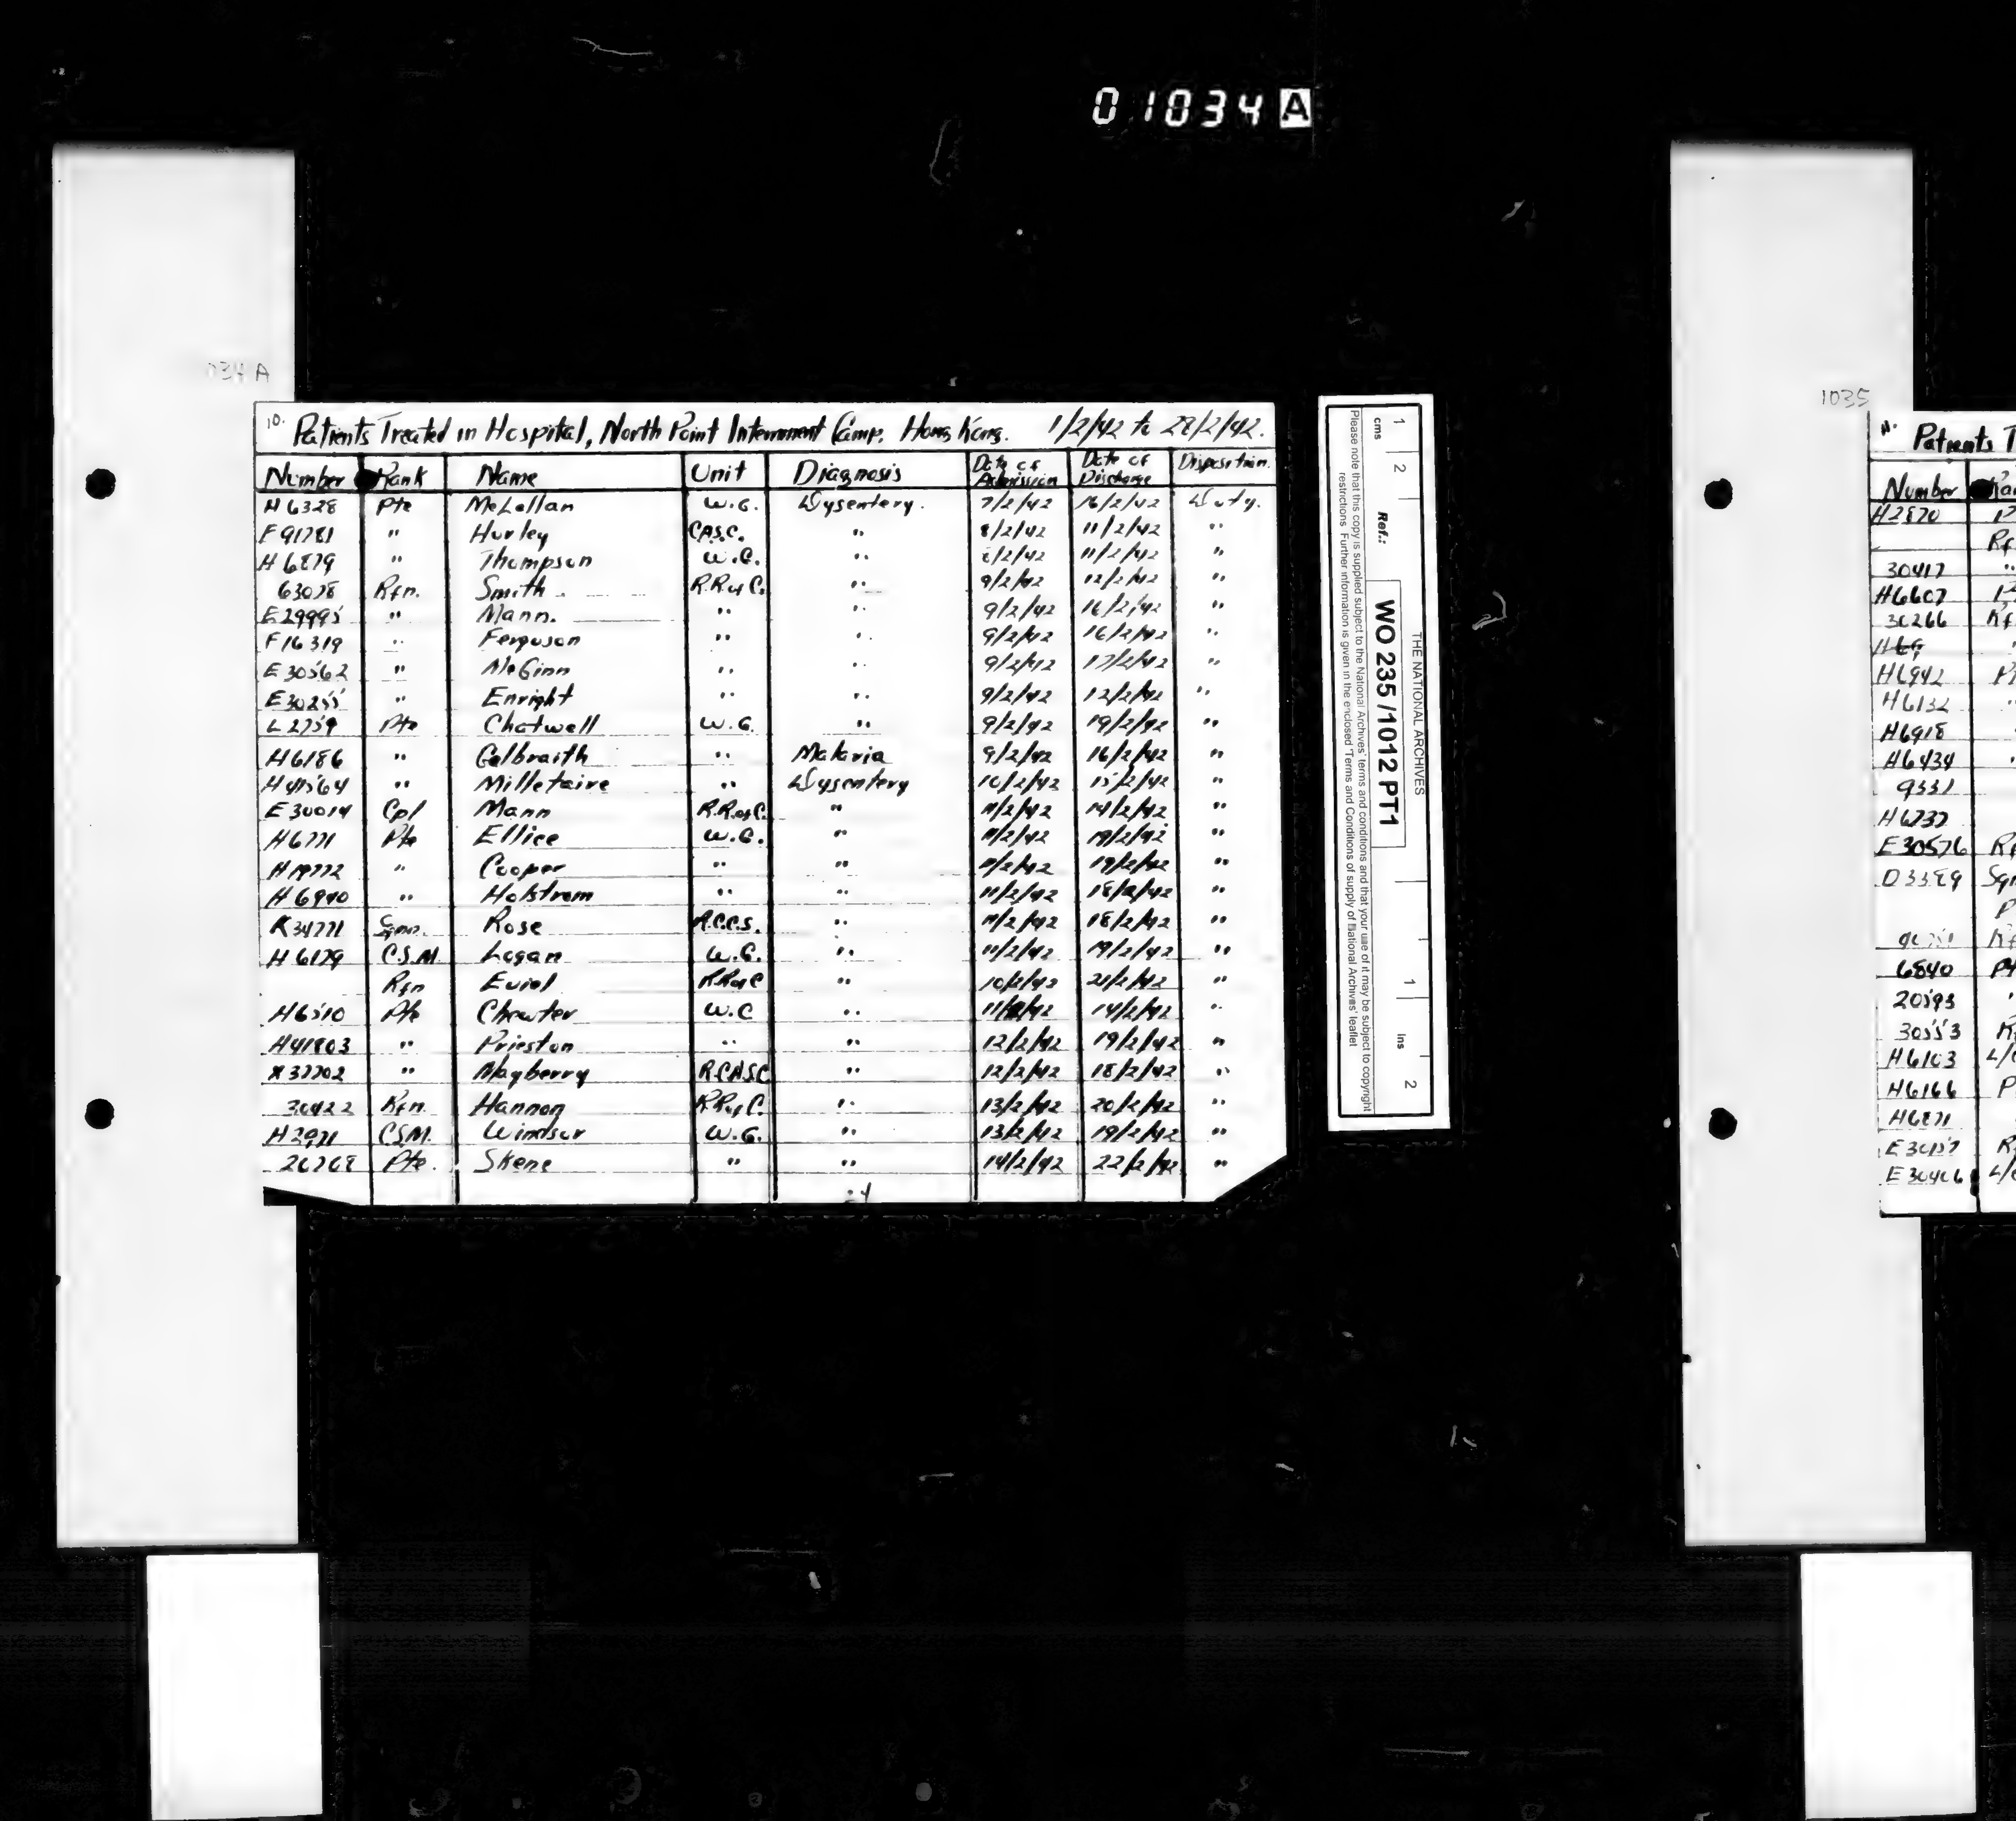 01034A
034 A
10. Patients Treated in Hospital, North Point Internment Camp. Hong Kong. 1/2/42 to 28/2/42.
Number Rank Name Unit Diagnosis Date of Admission Date of Discharge Disposition
H 6328 Pte McLellan W.G. Dysentery. 7/2/42 16/2/42 Duty.
F 91781 " Hurley CASC. " 8/2/42 11/2/42 "
H 6879 " Thompson W.G. " 8/2/42 11/2/42 "
63028 Rfn. Smith R.R. of C. " 9/2/42 12/2/42 "
E 29995 " Mann. " " 9/2/42 16/2/42 "
F 16319 " Ferguson " " 9/2/42 16/2/42 "
E 30562 " McGinn " " 9/2/42 17/2/42 "
E 30255 " Enright " " 9/2/42 12/2/42 "
L 2759 Pte Chatwell W.G. " 9/2/42 19/2/42 "
H 6186 " Galbraith " Malaria 9/2/42 16/2/42 "
H 41564 " Milletaire " Dysentery 10/2/42 15/2/42 "
E 30014 Cpl Mann R.R. of C. " 11/2/42 14/2/42 "
H 6771 Pte Ellice W.G. " 11/2/42 19/2/42 "
H 19772 " Cooper " " 11/2/42 19/2/42 "
H 6940 " Holstrom " " 11/2/42 18/2/42 "
K 34771 Sgmn. Rose R.C.C.S. " 11/2/42 18/2/42 "
H 6179 C.S.M. Logan W.G. " 11/2/42 19/2/42 "
Rfn R.R of C " 10/2/42 21/2/42 "
H 6510 Pte Chewter W.G " 11/2/42 14/2/42 "
H 41803 " Prieston " " 12/2/42 19/2/42 "
K 37702 " Mayberry R.C.A.S.C " 12/2/42 18/2/42 "
30422 Rfn. Hannon R.R. of C. " 13/2/42 20/2/42 "
H 2971 CSM. Windsor W.G. " 13/2/42 19/2/42 "
26768 Pte. Skene " " 14/2/42 22/2/42 "
24
THE NATIONAL ARCHIVES
1 ins 2
cms 1 2 Ref.: WO 235/1012 PT1
Please note that this copy is supplied subject to the National Archives' terms and conditions and that your use of it may be subject to copyright
restrictions. Further information is given in the enclosed 'Terms and Conditions of supply of National Archives' leaflet
1035
11. Patients T
Number
H2870
Rf
30417 "
H6607
30266 Rf
H6942
H6132 "
H6918
H6434
9331
H6737
E 30576
D 3389
6840
20593
30553
H6103 L/
H6166 P
H6871
E 30157 R
E 30406 L/